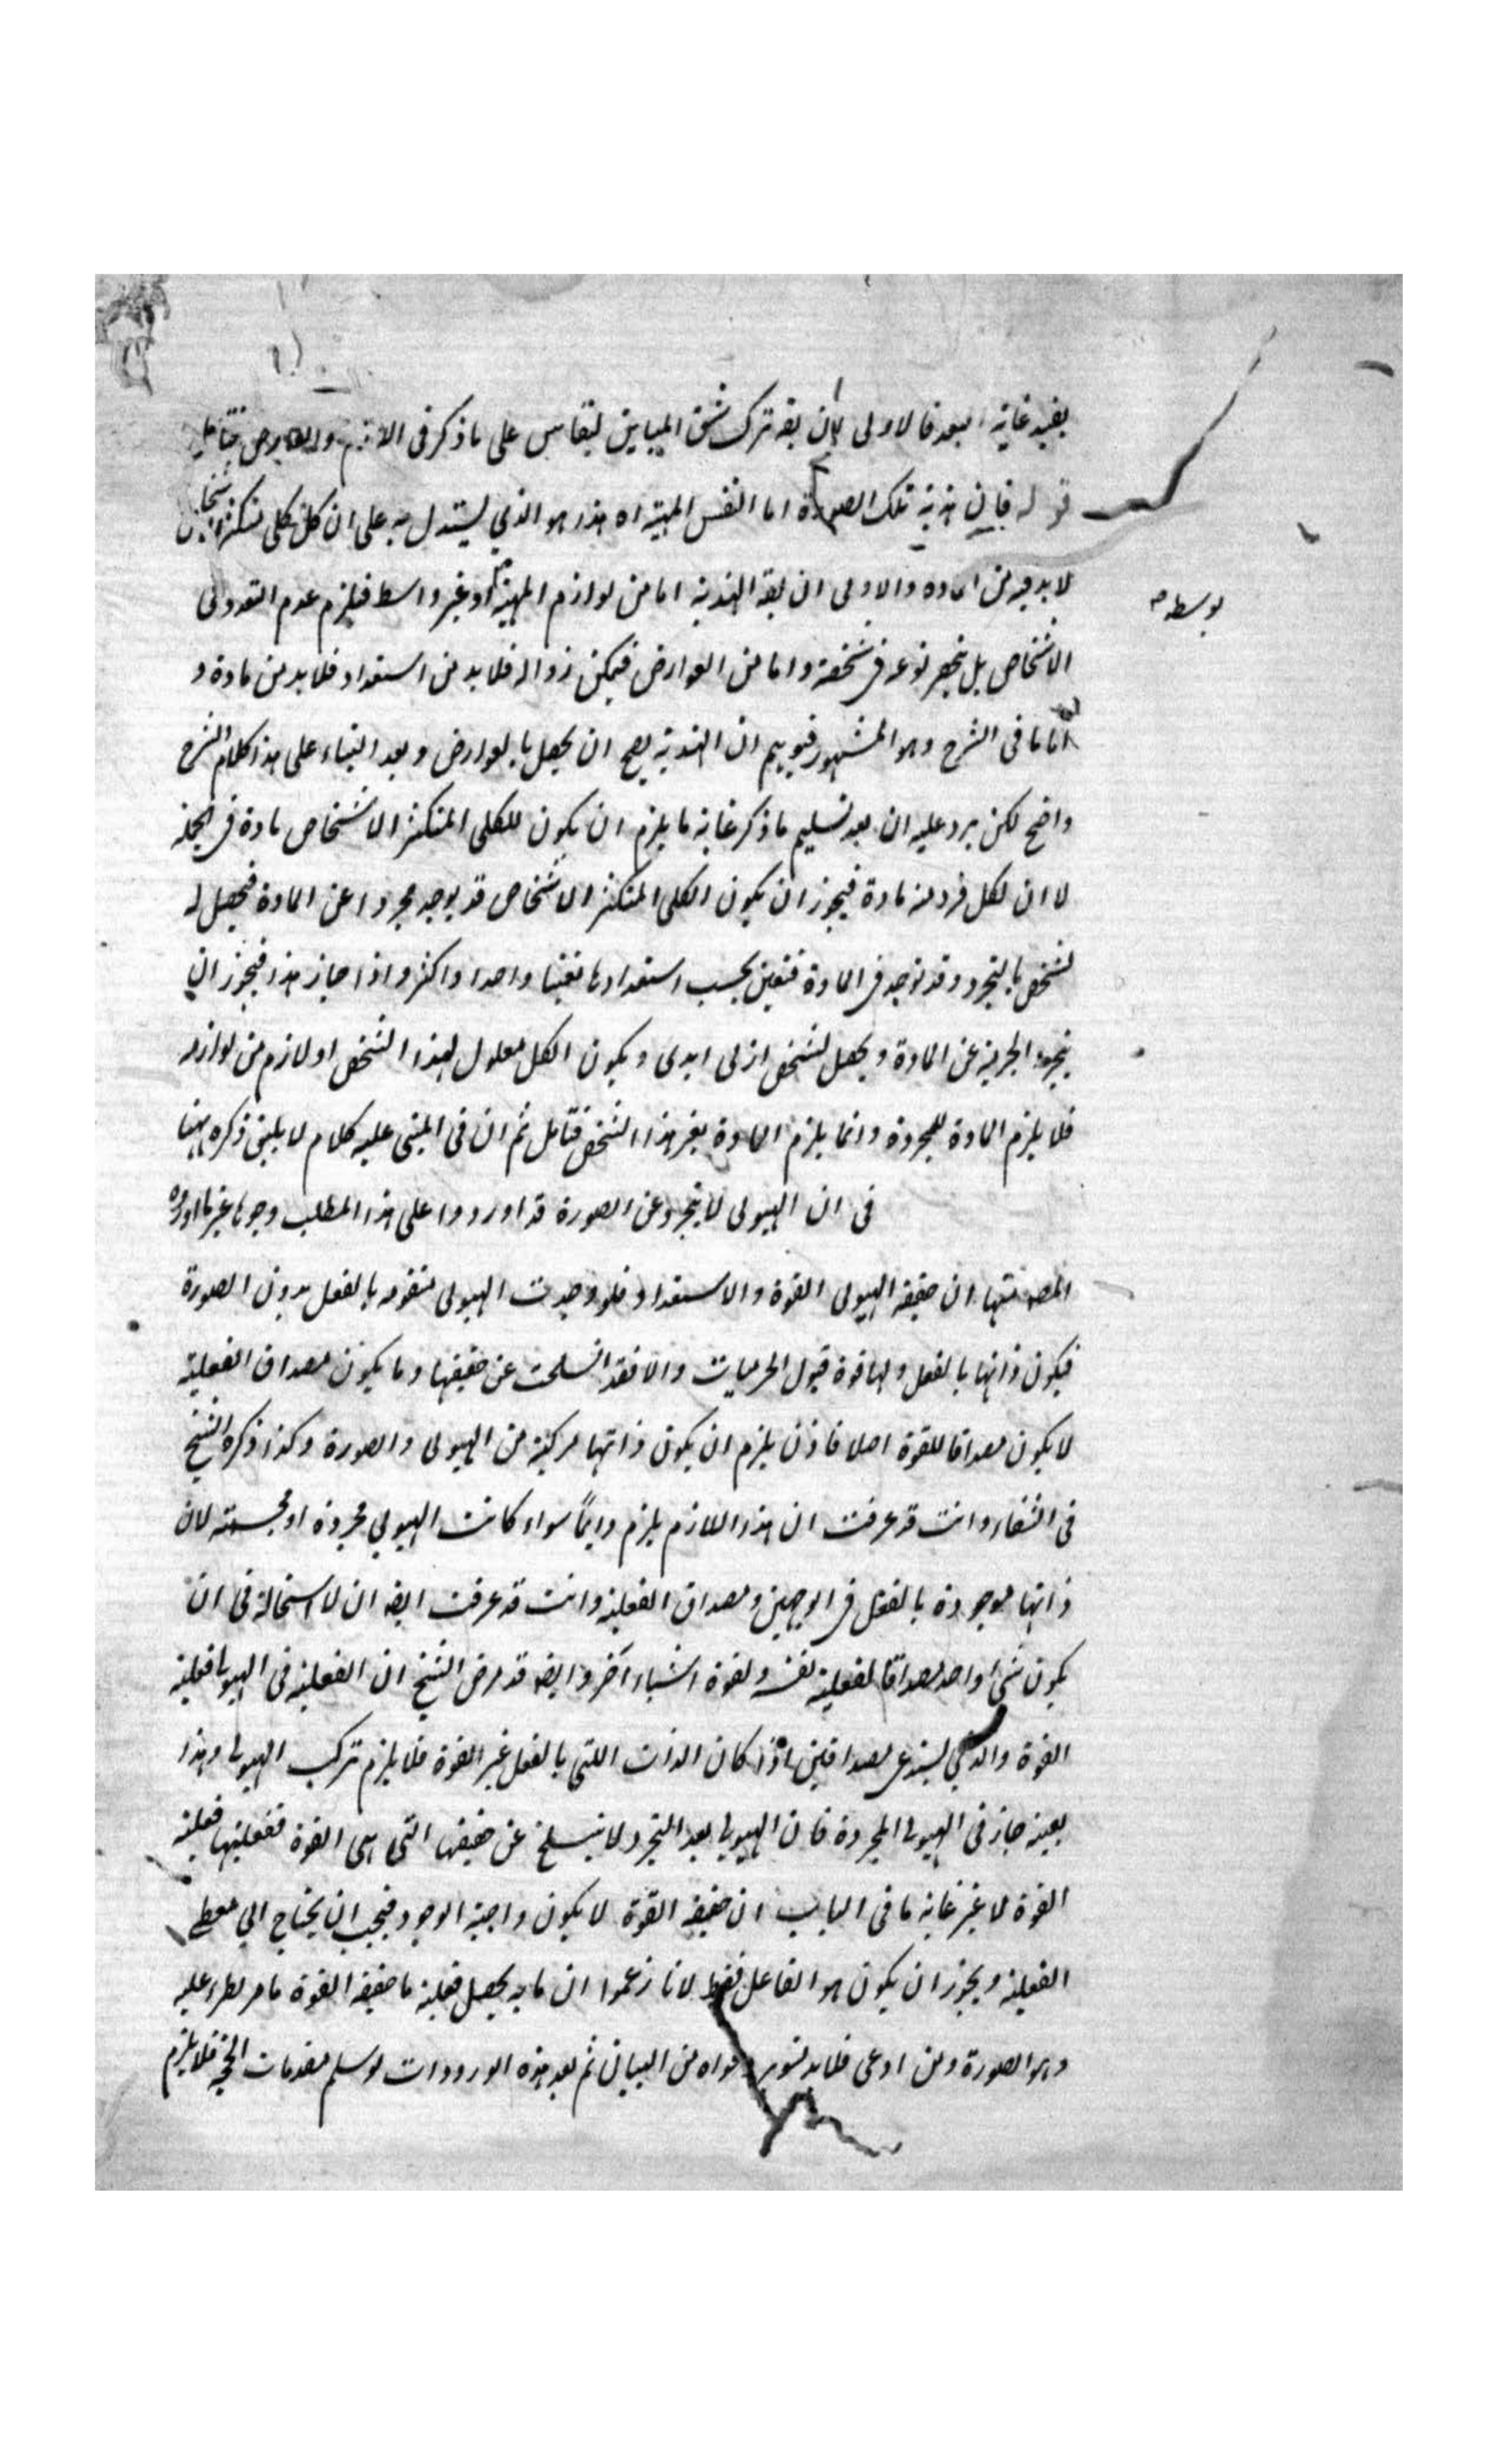 يفيد غاية البعد فالاولى بان يقه ترك شق المباين ليقاس على ما ذكر فى اللازم والعارض فتامل
قوله فان هذية تلك الصورة اما لنفس المهية اه هذا هو الذي يستدل به على ان كل كلى متكثر الاشخاص
لا بد فيه من المادة والاولى ان يقه الهذية اما من لوازم المهية او بغير واسط فيلزم عدم التعدد فى
بوسط
الاشخاص بل ينحصر نوعه فى شخصه واما من العوارض فيمكن زواله فلا بد من استعداد فلا بد من مادة و
اما ما فى الشرح وهو المشهور فيوهم ان الهذية يصح ان يحصل بالعوارض وبعد البناء على هذا كلام الشرح
واضح لكن يرد عليه ان بعد تسليم ما ذكر غاية ما يلزم ان يكون للكلى المتكثر الاشخاص مادة فى الجملة
لا ان لكل فرد له مادة فيجوز ان يكون الكلى المتكثر الاشخاص قد يوجد مجردا عن المادة فيحصل له
تشخص بالتجرد وقد توجد فى المادة فتعين بحسب استعدادها تعينا واحدا واكثر واذا جاز هذا فيجوز ان
يتجرد الجرمية عن المادة ويحصل تشخص ازلى ابدى ويكون الكل معلول لهذا الشخص او لازم من لوازمه
فلا يلزم المادة للمجردة وانما يلزم المادة بغير هذا الشخص فتامل ثم ان فى المبنى عليه كلام لا يليق ذكره ههنا
فى ان الهيولى لا يتجرد عن الصورة قد اوردوا على هذا المطلب وجوها غير ما اورده
المصه منها ان حقيقة الهيولى القوة والاستعداد فلو وجدت الهيولى متقومه بالفعل بدون الصورة
فيكون ذاتها بالفعل ولها قوة قبول الجرميات والا فقد انسلخت عن حقيقتها وما يكون مصداق الفعلية
لا يكون مصداقا للقوة اصلا فاذن يلزم ان يكون ذاتها مركبة من الهيولى والصورة وكذا ذكره الشيخ
فى الشفاء وانت قد عرفت ان هذا اللازم يلزم دايماً سواء كانت الهيولي مجردة او مجسمة لان
ذاتها موجودة بالفعل فى الوجهين ومصداق الفعلية وانت قد عرفت ايضه ان لا استحالة فى ان
يكون شى واحد مصداقا لفعلية نفسه ولقوة اشياء آخر وايضه قد مرض الشيخ ان الفعلية فى الهيولى فعلية
القوة والذي يستدعى مصداقين اذا كان الذات اللتى بالفعل غير القوة فلا يلزم تركب الهيولى وهذا
بعينه جاز فى الهيولى المجردة فان الهيولى بعد التجرد لا ينسلخ عن حقيقتها التى هى القوة ففعليتها فعلية
القوة لا غير غاية ما فى الباب ان حقيقة القوة لا يكون واجبة الوجود فيجب ان يحتاج الي معطى
الفعلية ويجوز ان يكون هو الفاعل فقط لانا زعموا ان ما به يحصل فعلية ما حقيقة القوة ما مر يطرء عليه
وهو الصورة ومن ادعى فلا بد لتنوير دعواه من البيان ثم بعد هذه الورودات لو سلم مقدمات الحجة فلا يلزم